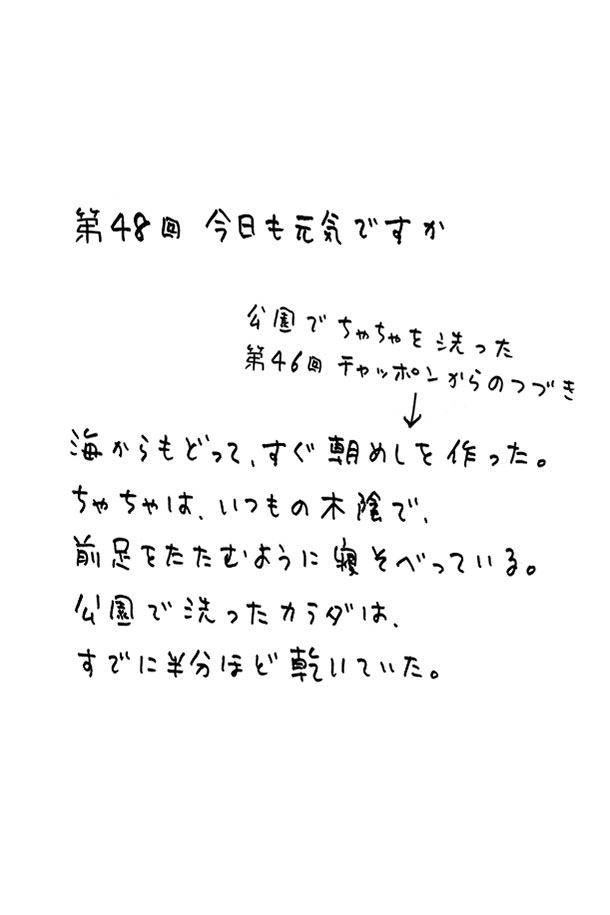 第48回 今日も元気ですか
公園でちゃちゃを洗った
第46回 チャッポンからのつづき
海からもどって、すぐ朝めしを作った。
ちゃちゃは、いつもの木陰で、
前足をたたむように寝そべっている。
公園で洗ったカラダは、
すでに半分ほど乾いていた。